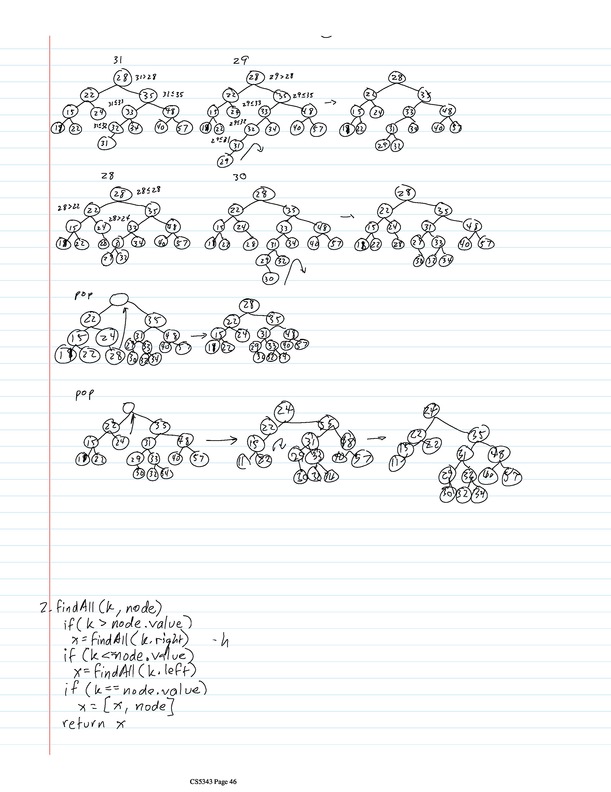 31 29
28 31>28 28 29>28 28
22 35 31≤35 22 35 29≤35 22 35
15 24 31≤33 33 48 15 24 29≤33 33 48 15 24 33 48
22 31≤32 32 34 40 57 22 29≤32 32 34 40 57 22 31 34 40 57
31 29≤31 31 29 32
29
28 30
28 28≤28 28 28
28>22 22 35 22 35 22 35
15 28>24 24 33 48 15 24 33 48 15 24 31 48
22 28 31 34 40 57 18 22 28 31 34 40 57 18 22 28 29 33 40 57
29 32 29 32 30 32 34
30
pop
28
22 35 22 35
15 24 31 48 15 24 31 48
22 28 29 33 40 57 22 29 33 40 57
30 32 34 30 32 34
pop
24 24
22 35 22 35 22 35
15 24 31 48 15 31 48 15 22 31 48
22 29 33 40 57 11 22 29 33 40 57 11 29 33 40 57
30 32 34 30 32 34 30 32 34
2. findAll(k, node)
if(k > node.value)
x = findAll(k.right) - h
if (k <= node.value)
x = findAll(k.left)
if (k == node.value)
x = [x, node]
return x
CS5343 Page 46